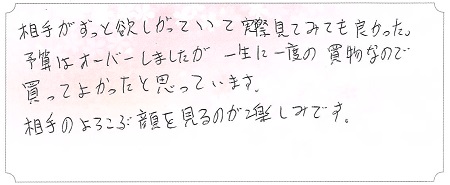 相手がずっと欲しがっていて実際見てみても良かった。
予算はオーバーしましたが 一生に一度の買物なので
買ってよかったと思っています。
相手のよろこぶ顔を見るのが楽しみです。